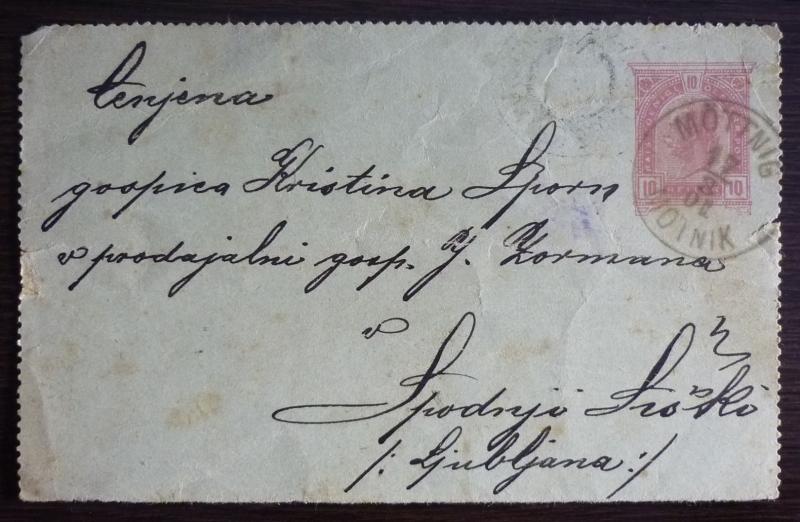 Cenjena
gospica Kristina Sporn
v prodajalni gosp. J. Zormana
v
Spodnji Šiški
/: Ljubljana :/
10
10 10
MÖTTNIG
17
MOTNIK